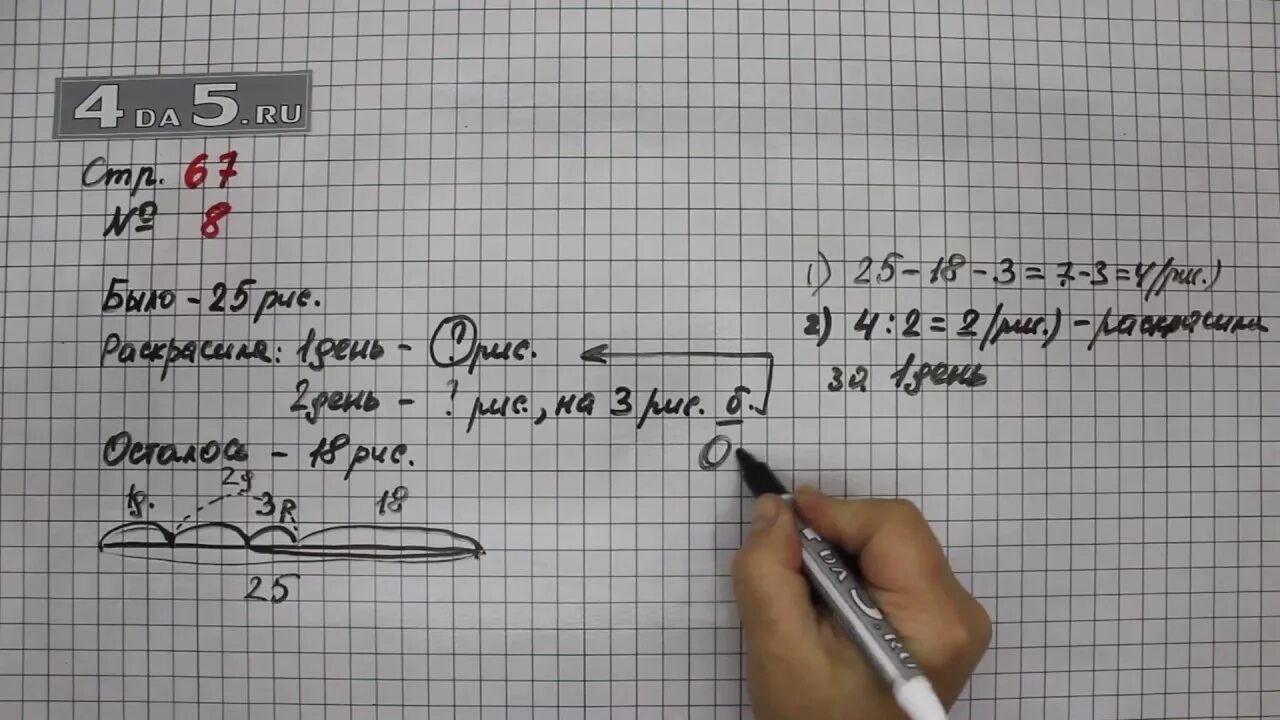 4DA5.RU
Стр. 67
№ 8
Было - 25 рис.
Раскрасила: 1 день - ? рис.
2 день - ? рис., на 3 рис. б.
Осталось - 18 рис.
1д. 2д 3 R 18
25
1) 25 - 18 - 3 = 7 - 3 = 4 (рис.)
2) 4 : 2 = 2 (рис.) - раскрасила
за 1 день
О
4DA5.RU